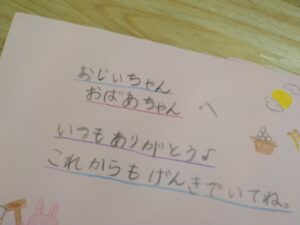 おじいちゃん
おばあちゃん へ
いつもありがとう♪
これからもげんきでいてね。